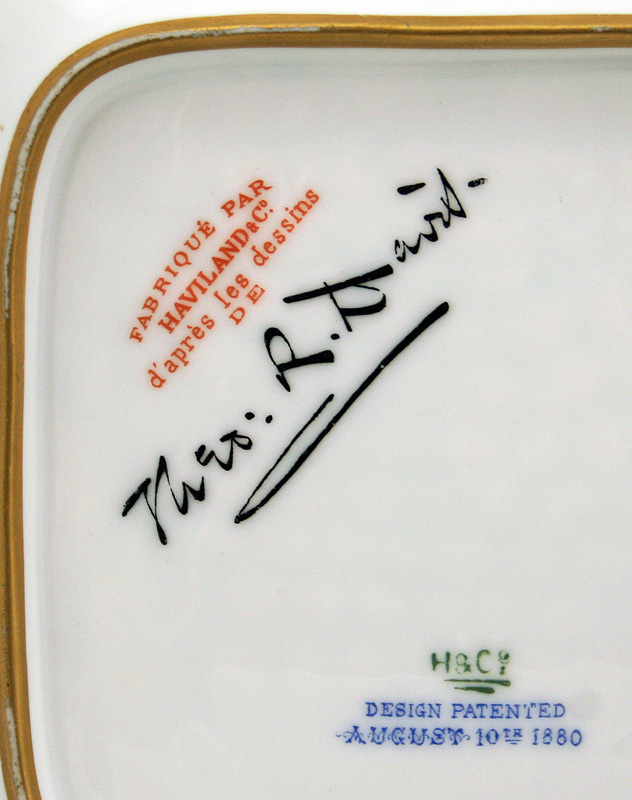 FABRIQUÉ PAR
HAVILAND & Co.
d'après les dessins
DE
Théo: R. Davis.
H & Co
DESIGN PATENTED
AUGUST 10TH 1880